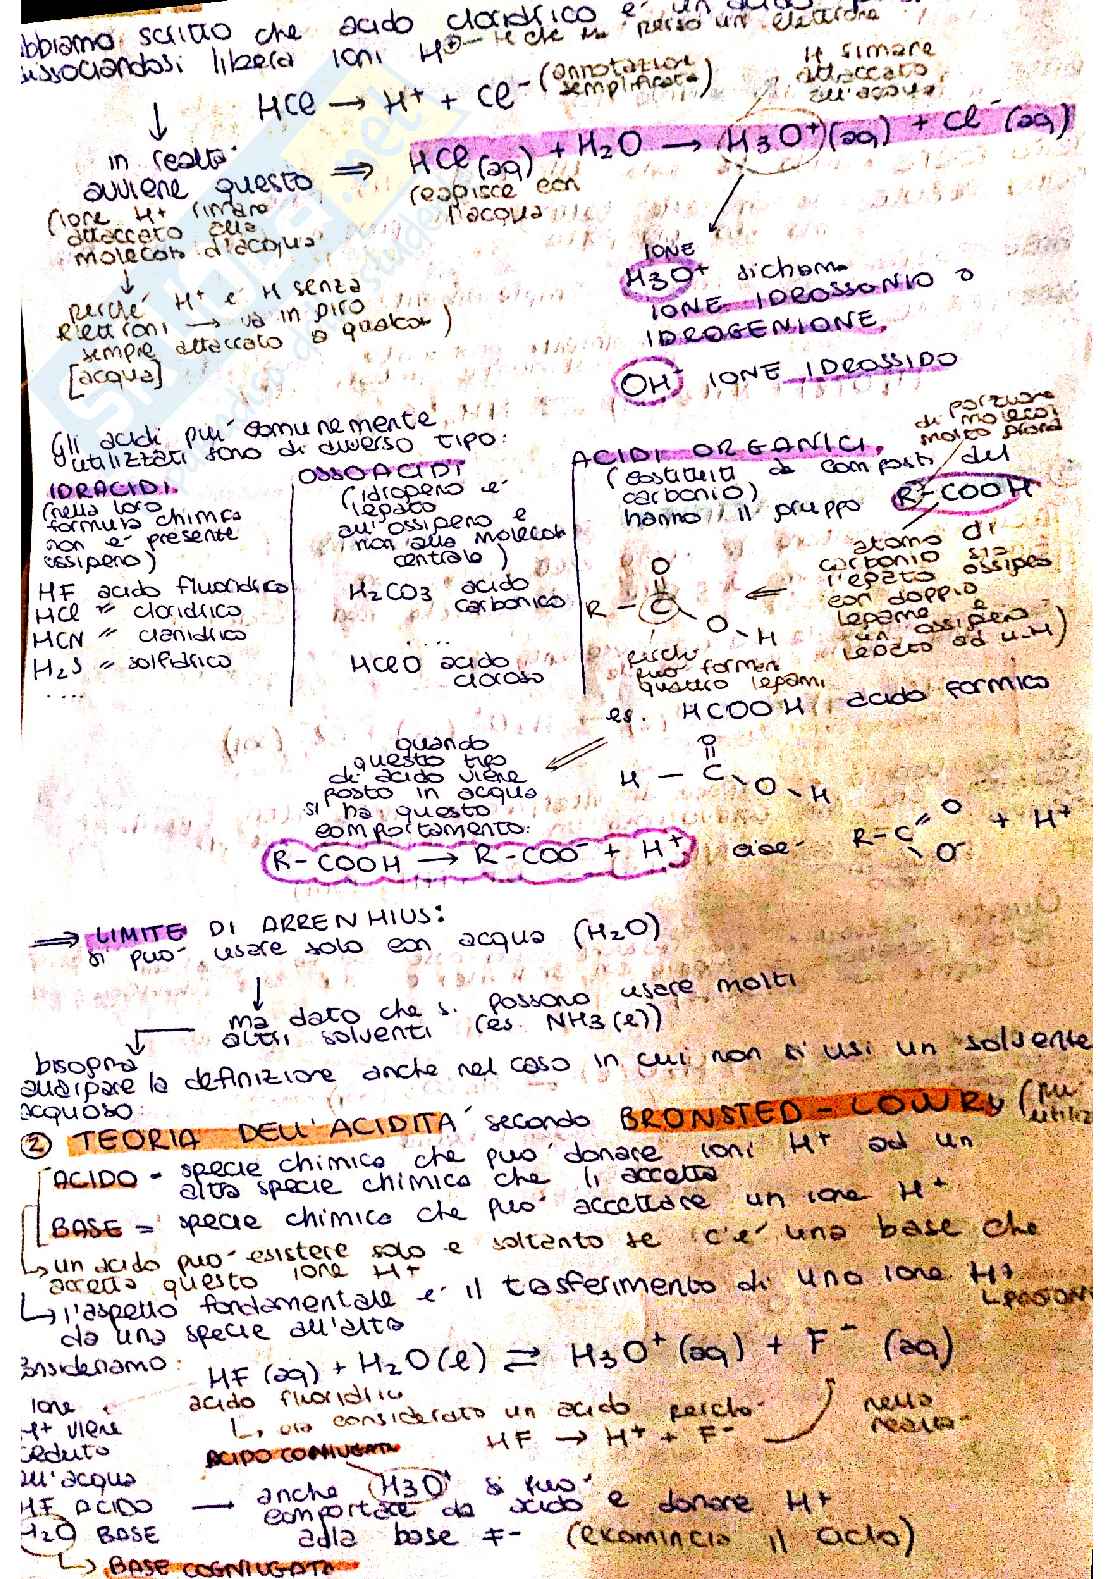 abbiamo scritto che acido cloridrico è un acido
dissociandosi libera ioni H⊕ → H che ha perso un elettrone
HCl → H+ + Cl- (annotazione semplificata)
H rimane attaccato all'acqua
in realtà avviene questo ⇒ HCl (aq) + H2O → H3O+ (aq) + Cl- (aq)
reagisce con l'acqua
(ione H+ rimane
attaccato alla
molecola d'acqua
perché H+ è H senza
elettroni → va in giro
sempre attaccato a qualcosa)
[acqua]
IONE
H3O+ si chiama
IONE IDROSSONIO o
IDROGENIONE.
OH- IONE IDROSSIDO
Gli acidi più comunemente
utilizzati sono di diverso tipo:
IDRACIDI
(nella loro
formula chimica
non è presente
ossigeno)
HF acido fluoridrico
HCl " cloridrico
HCN " cianidrico
H2S " solfidrico
....
OSSOACIDI
(idrogeno è
legato
all'ossigeno e
non alla molecola
centrale)
H2CO3 acido
carbonico
....
HClO acido
cloroso
ACIDI ORGANICI.
(costituiti da composti del
carbonio)
hanno il gruppo R-COOH
porzione
di molecola
molto grande
atomo di
carbonio sia
legato ossigeno
con doppio
legame e
un ossigeno
legato ad un H)
O
R - C
O - H
perché
può formare
quattro legami
es. HCOOH acido formico
O
H - C
O - H
quando
questo tipo
di acido viene
posto in acqua
si ha questo
comportamento:
R-COOH → R-COO- + H+ cioè R-C O O- + H+
⇒ LIMITE DI ARRENHIUS:
si può usare solo con acqua (H2O)
ma dato che si possono usare molti
altri solventi (es. NH3(l))
bisogna
anticipare la definizione anche nel caso in cui non si usi un solvente
acquoso:
② TEORIA DELL'ACIDITÀ secondo BRONSTED-LOWRY (più utiliz
ACIDO = specie chimica che può donare ioni H+ ad un
altra specie chimica che li accetta
BASE = specie chimica che può accettare un ione H+
un acido può esistere solo e soltanto se c'è una base che
accetta questo ione H+
l'aspetto fondamentale è il trasferimento di uno ione H+
da una specie all'altra
Consideriamo: HF (aq) + H2O (l) ⇌ H3O+ (aq) + F- (aq)
acido fluoridrico
sia considerato un acido perché
HF → H+ + F-
nella
realtà
ione
H+ viene
ceduto
all'acqua
HF ACIDO
H2O BASE
ACIDO CONIUGATA
→ anche H3O+ si può
comportare da acido e donare H+
alla base F- (ricomincia il ciclo)
BASE COGNIUGATA